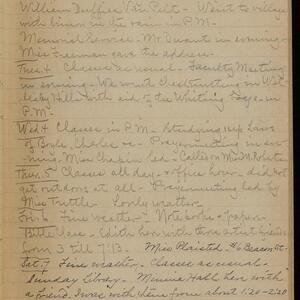 William Duffield Van Pelt - Went to village
with in the rain in P.M.
Memorial Service - Mr. Durant in evening -
Miss Freeman gave the address.
Tues. Classes as usual. Faculty Meeting
in evening - We went in Wel-
lesley Hills with aid of Eva Whiting
P.M.
Wed 4 Classes in P.M. - Studying up Laws
of Boyle, Charles &c - Prayermeeting in eve-
ning. Miss Chapin led - Called on Miss M. Roberts
Thurs. 5 Classes all day - + Office hour - did not
get outdoors at all - Prayermeeting led by
Miss Tuttle - Lovely weather -
Fri. 6 Fine weather - Note books + papers -
Bible Class - Edith here with three artist friends
from 3 till 7/13. Miss Plaisted #6 Beacon St.
Sat. 7 Fine weather - Classes as usual -
Sunday Library. Minnie Hall here with
a friend. I was with them from about 1:20 - 2:20